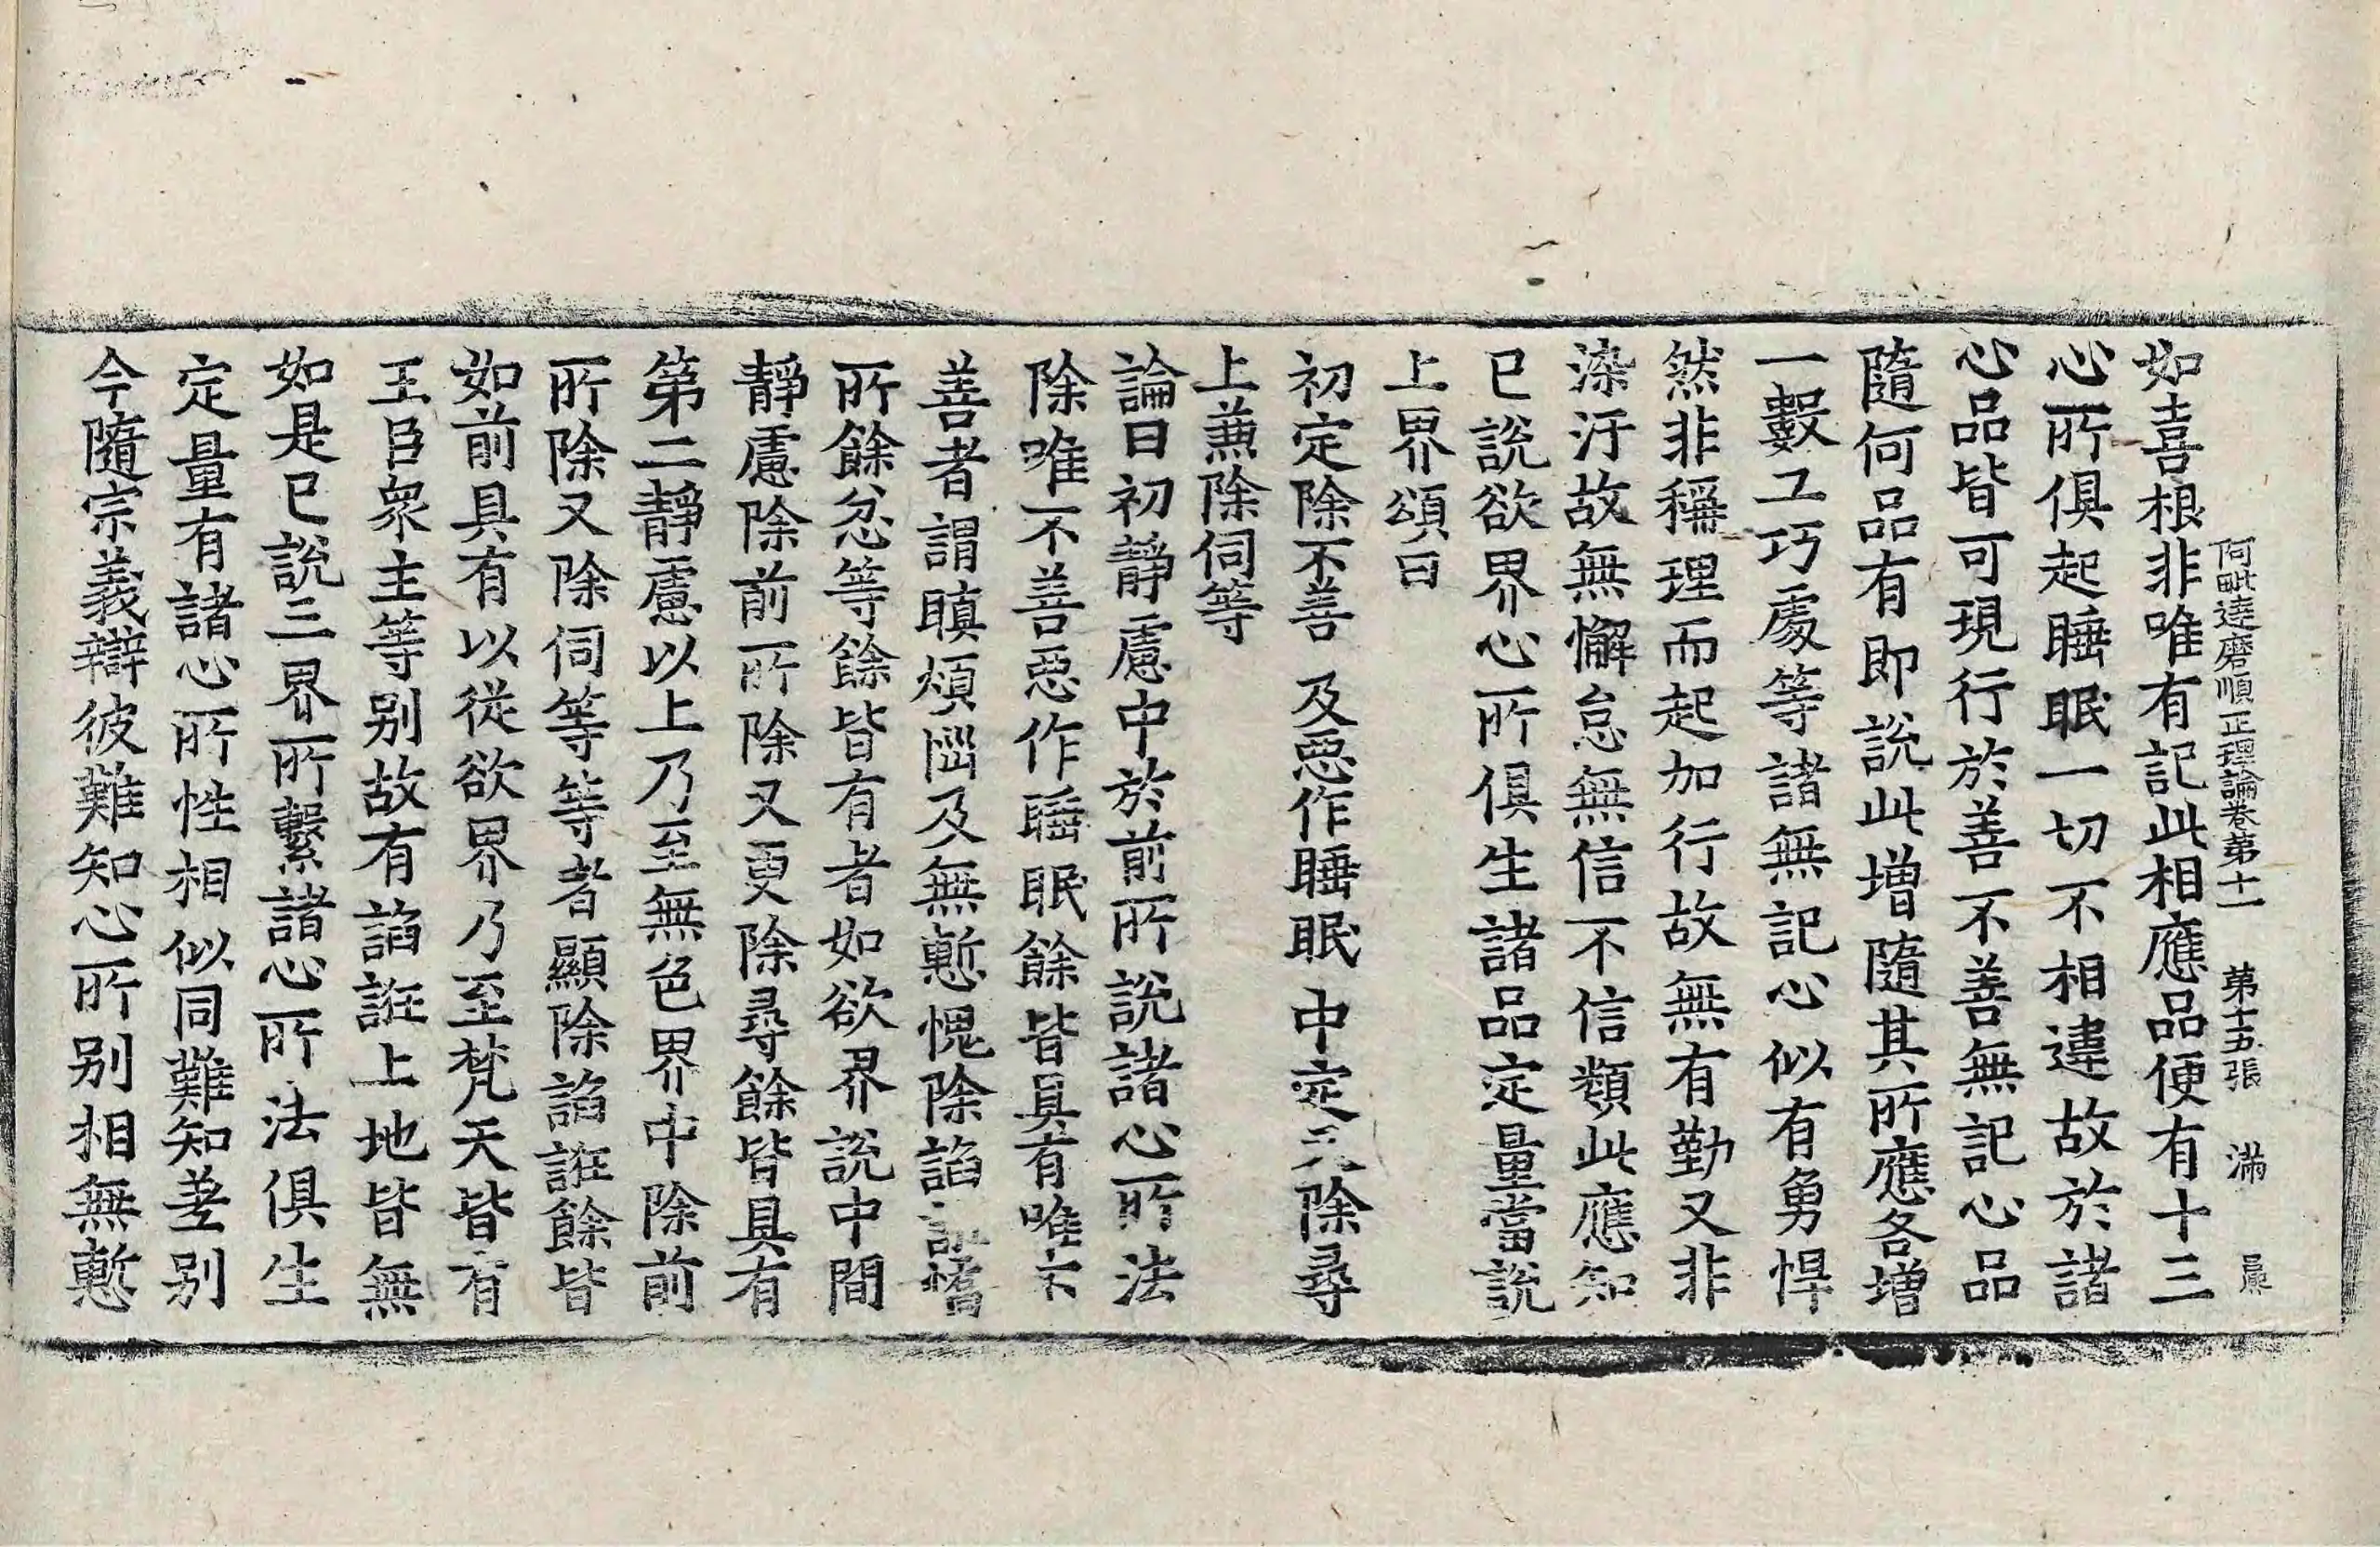 阿毗達磨順正理論卷第十一　第十五張　滿
如喜根非唯有記此相應品便有十三
心所俱起睡眠一切不相違故於諸
心品皆可現行於善不善無記心品
隨何品有即說此增隨其所應各增
一數工巧處等諸無記心似有勇悍
然非稱理而起加行故無有勤又非
染汙故無懈怠無信不信類此應知
已說欲界心所俱生諸品定量當說
上界頌曰
初定除不善　及惡作睡眠　中定又除尋
上兼除伺等
論曰初靜慮中於前所說諸心所法
除唯不善惡作睡眠餘皆具有唯不
善者謂瞋煩惱及無慙愧除諂誑憍
所餘忿等餘皆有者如欲界說中間
靜慮除前所除又更除尋餘皆具有
第二靜慮以上乃至無色界中除前
所除又除伺等等者顯除諂誑餘皆
如前具有以從欲界乃至梵天皆有
王臣眾主等別故有諂誑上地皆無
如是已說三界所繫諸心所法俱生
定量有諸心所性相似同難知差別
今隨宗義辯彼難知心所別相無慙